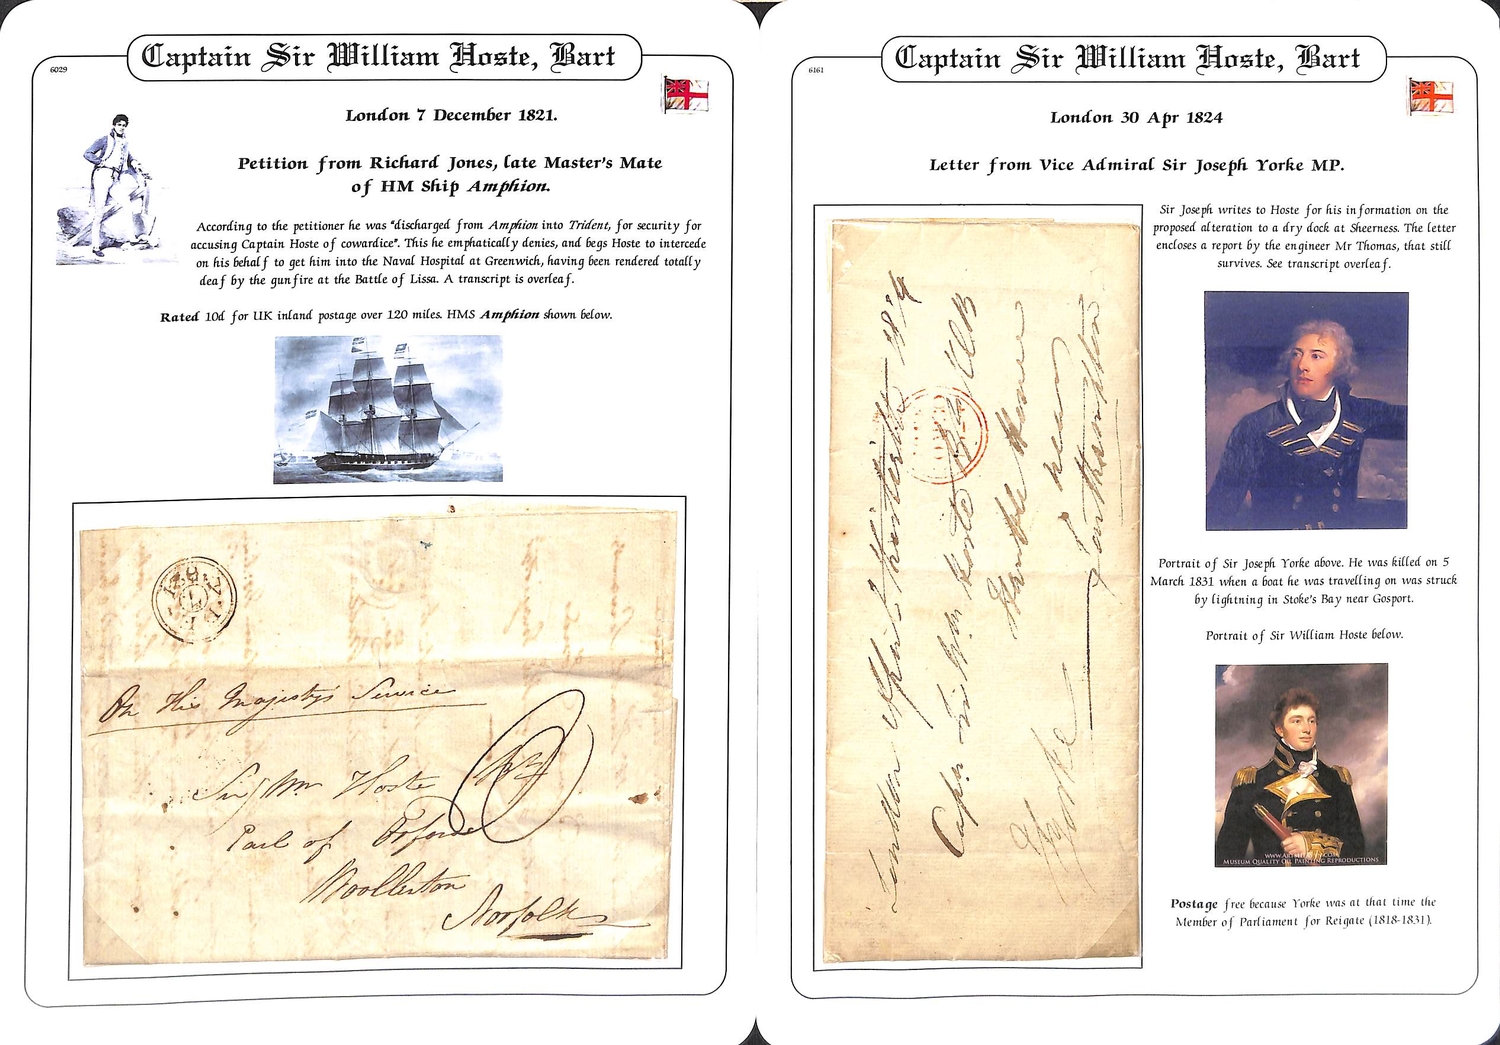 6029
Captain Sir William Hoste, Bart
London 7 December 1821.
Petition from Richard Jones, late Master's Mate
of HM Ship Amphion.
According to the petitioner he was "discharged from Amphion into Trident, for security for
accusing Captain Hoste of cowardice". This he emphatically denies, and begs Hoste to intercede
on his behalf to get him into the Naval Hospital at Greenwich, having been rendered totally
deaf by the gunfire at the Battle of Lissa. A transcript is overleaf.
Rated 10d for UK inland postage over 120 miles. HMS Amphion shown below.
On His Majesty's Service
Sir Wm Hoste
Earl of Orford
Woollerton
Norfolk
6161
Captain Sir William Hoste, Bart
London 30 Apr 1824
Letter from Vice Admiral Sir Joseph Yorke MP.
Sir Joseph writes to Hoste for his information on the
proposed alteration to a dry dock at Sheerness. The letter
encloses a report by the engineer Mr Thomas, that still
survives. See transcript overleaf.
London April thirtieth 1824
Capn Sir Wm Hoste Bt KCB
Hamble House
near
Southampton
JYorke
Portrait of Sir Joseph Yorke above. He was killed on 5
March 1831 when a boat he was travelling on was struck
by lightning in Stoke's Bay near Gosport.
Portrait of Sir William Hoste below.
MUSEUM QUALITY OIL PAINTING REPRODUCTIONS
Postage free because Yorke was at that time the
Member of Parliament for Reigate (1818-1831).